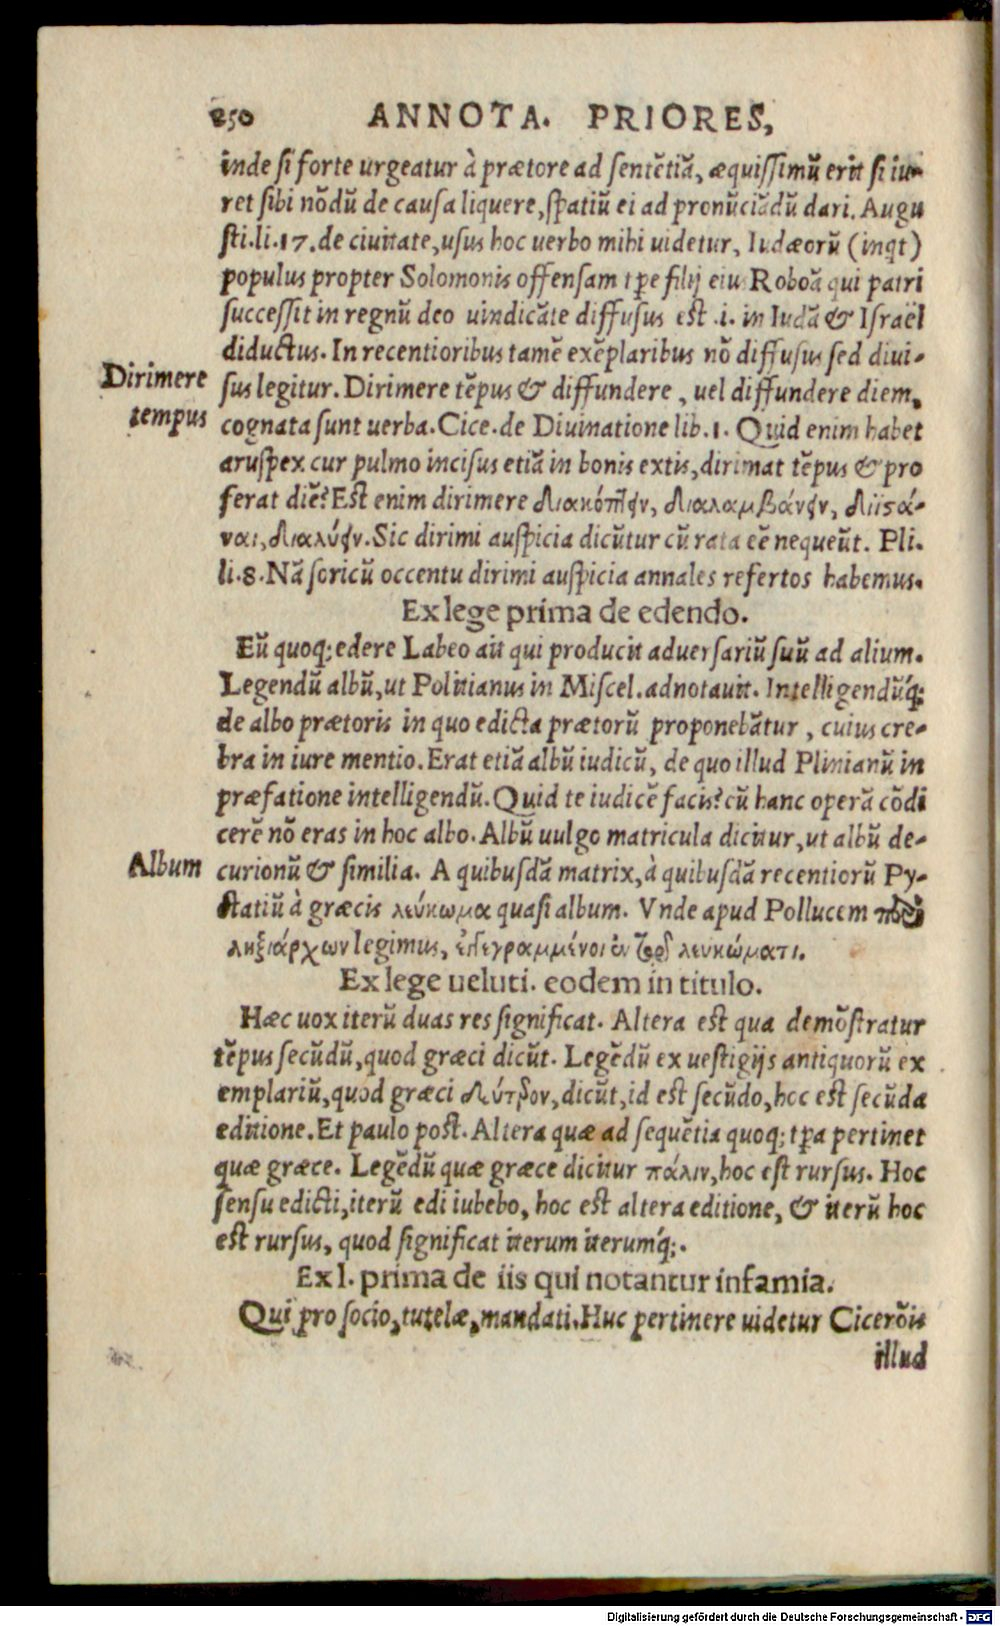 250 ANNOTA. PRIORES,
inde si forte urgeatur à prætore ad sentẽtiã, æquissimũ erit si iu-
ret sibi nõdũ de causa liquere, spatiũ ei ad pronũciãdũ dari. Augu
sti. li. 17. de ciuitate, usus hoc uerbo mihi uidetur, Iudæorũ (inqt)
populus propter Solomonis offensam tpe filij eius Roboã qui patri
successit in regnũ deo uindicãte diffusus est .i. in Iudã & Israël
diductus. In recentioribus tamẽ exẽplaribus nõ diffusus sed diui-
Dirimere tempus
sus legitur. Dirimere tẽpus & diffundere, uel diffundere diem,
cognata sunt uerba. Cice. de Diuinatione lib. 1. Quid enim habet
aruspex cur pulmo incisus etiã in bonis extis, dirimat tẽpus & pro
ferat diẽ? Est enim dirimere διακόπτειν, διαλαμβάνειν, διϊστά-
ναι, διαλύειν. Sic dirimi auspicia dicũtur cũ rata eẽ nequeũt. Pli.
li. 8. Nã soricũ occentu dirimi auspicia annales refertos habemus.
Ex lege prima de edendo.
Eũ quoq; edere Labeo ait qui producit aduersariũ suũ ad alium.
Legendũ albũ, ut Politianus in Miscel. adnotauit. Intelligendũq́;
de albo prætoris in quo edicta prætorũ proponebãtur, cuius cre-
bra in iure mentio. Erat etiã albũ iudicũ, de quo illud Plinianũ in
præfatione intelligendũ. Quid te iudicẽ facis? cũ hanc operã cõdi
cerẽ nõ eras in hoc albo. Albũ uulgo matricula dicitur, ut albũ de-
Album
curionũ & similia. A quibusdã matrix, à quibusdã recentiorũ Py-
ctatiũ à græcis λεύκωμα quasi album. Vnde apud Pollucem
ληξιάρχων legimus, ἐπεγραμμένοι ἐν λευκώματι.
Ex lege ueluti. eodem in titulo.
Hæc uox iterũ duas res significat. Altera est qua demõstratur
tẽpus secũdũ, quod græci dicũt. Legẽdũ ex uestigijs antiquorũ ex
emplariũ, quod græci δεύτερον, dicũt, id est secũdo, hoc est secũda
editione. Et paulo post. Altera quæ ad sequẽtia quoq; tpa pertinet
quæ græce. Legẽdũ quæ græce dicitur πάλιν, hoc est rursus. Hoc
sensu edicti, iterũ edi iubebo, hoc est altera editione, & iterũ hoc
est rursus, quod significat iterum iterumq́;.
Ex l. prima de iis qui notantur infamia.
Qui pro socio, tutelæ, mandati. Huc pertinere uidetur Cicerõis
illud
Digitalisierung gefördert durch die Deutsche Forschungsgemeinschaft - DFG